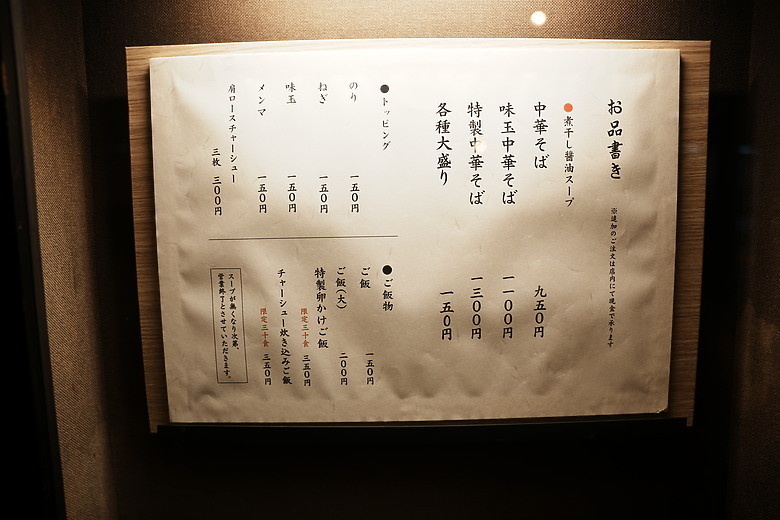 お品書き
※追加のご注文は店内にて現金で承ります
●煮干し醤油スープ
中華そば 九五〇円
味玉中華そば 一一〇〇円
特製中華そば 一三〇〇円
各種大盛り 一五〇円
●トッピング
のり 一五〇円
ねぎ 一五〇円
味玉 一五〇円
メンマ 一五〇円
肩ロースチャーシュー 三枚 三〇〇円
●ご飯物
ご飯 一五〇円
ご飯(大) 二〇〇円
特製卵かけご飯
限定三十食 三五〇円
チャーシュー炊き込みご飯
限定三十食 三五〇円
スープが無くなり次第、
営業終了とさせていただきます。